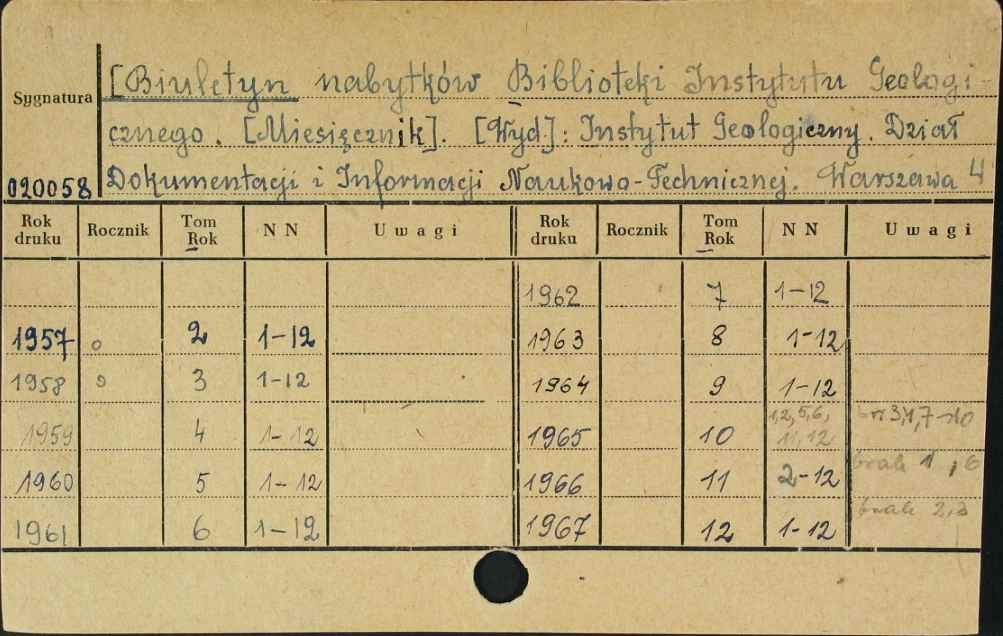 [Biuletyn nabytków Biblioteki Instytutu Geologi-
Sygnatura
cznego. [Miesięcznik]. [Wyd]: Instytut Geologiczny. Dział
020058 Dokumentacji i Informacji Naukowo-Technicznej. Warszawa 4
Rok druku Rocznik Tom Rok NN Uwagi Rok druku Rocznik Tom Rok NN Uwagi
1962 7 1-12
1957 2 1-12 1963 8 1-12
1958 3 1-12 1964 9 1-12
1959 4 1-12 1965 10 1,2,5,6, 11,12
1960 5 1-12 1966 11 2-12 brak 1, 6
1961 6 1-12 1967 12 1-12 brak